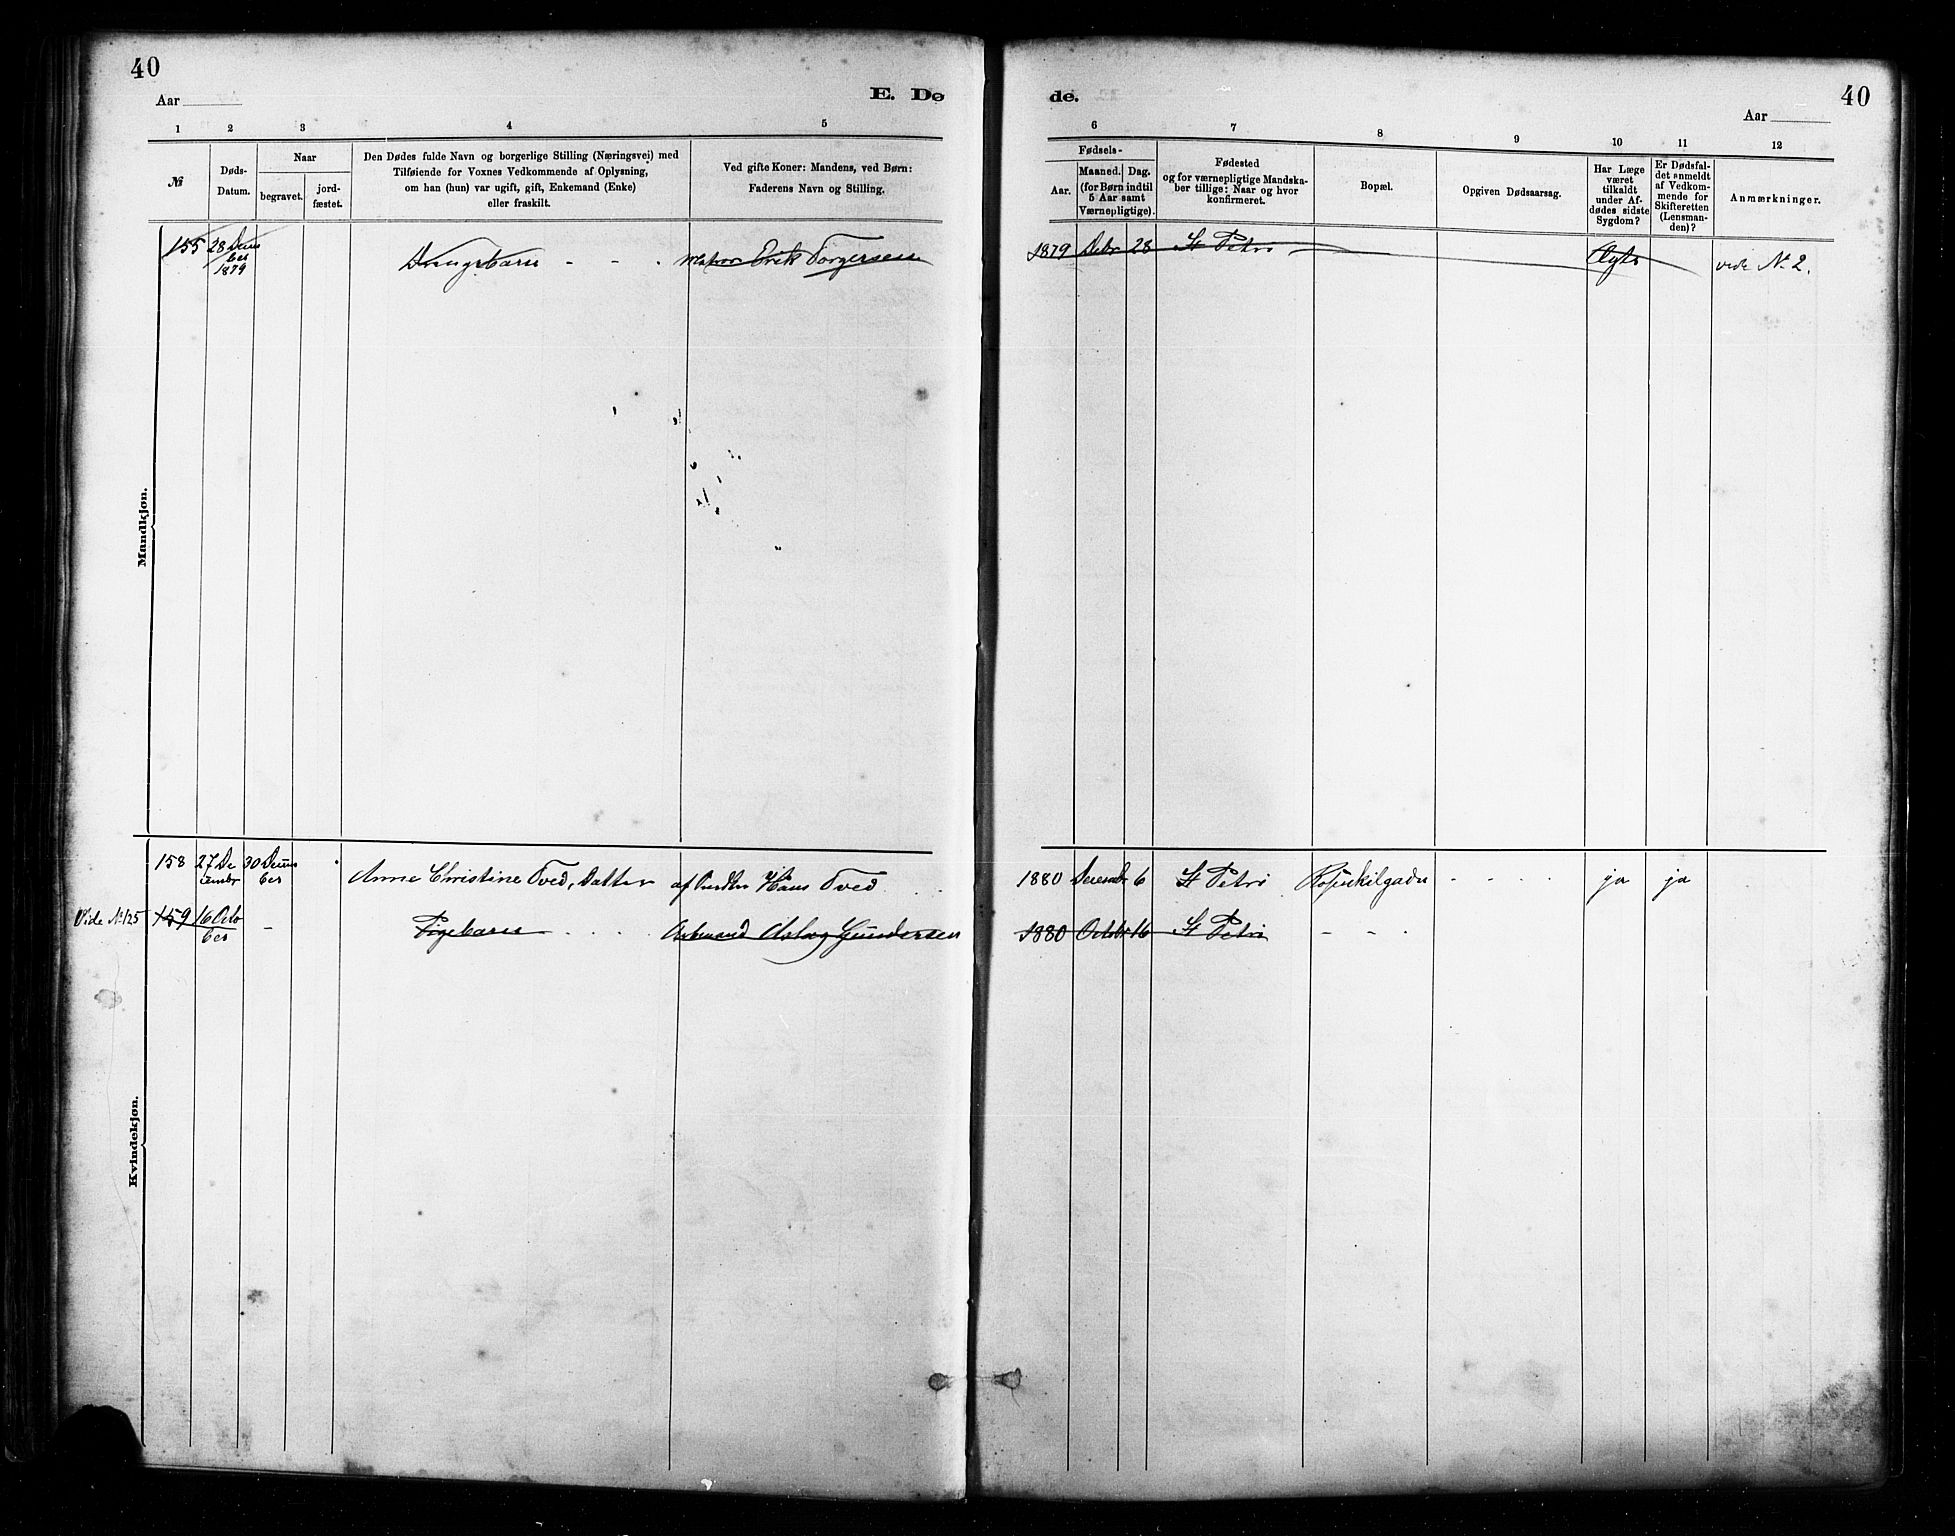 40
Aar
E. Dø
1 2 3 4 5
№
Døds-
Datum.
Naar
begravet.
jord-
fæstet.
Den Dødes fulde Navn og borgerlige Stilling (Næringsvei) med
Tilføiende for Voxnes Vedkommende af Oplysning,
om han (hun) var ugift, gift, Enkemand (Enke)
eller fraskilt.
Ved gifte Koner: Mandens, ved Børn:
Faderens Navn og Stilling.
155 28 Decem Drengebarn - - - Matros Erik Torgersen
ber
1879
Mandkjøn.
158 27 De 30 Decem Anne Christine Tved, Datter af Hans Tved
cember ber
Vide № 125 159 16 Octo - Pigebarn . . . . Arbmand Aslag Gundersen
ber
Kvindekjøn.
de.
40
Aar
6 7 8 9 10 11 12
Fødsels-
Aar.
Maaned. Dag.
(for Børn indtil
5 Aar samt
Værnepligtige).
Fødested
og for værnepligtige Mandska-
ber tillige: Naar og hvor
konfirmeret.
Bopæl.
Opgiven Dødsaarsag.
Har Læge
været
tilkaldt
under Af-
dødes sidste
Sygdom?
Er Dødsfal-
det anmeldt
af Vedkom-
mende for
Skifteretten
(Lensman-
den)?
Anmærkninger.
1879 Decbr 28 St Petri vide № 2.
1880 December 6 St Petri Rosenkilgaden - - - - ja ja
1880 Octobr 16 St Petri - - -